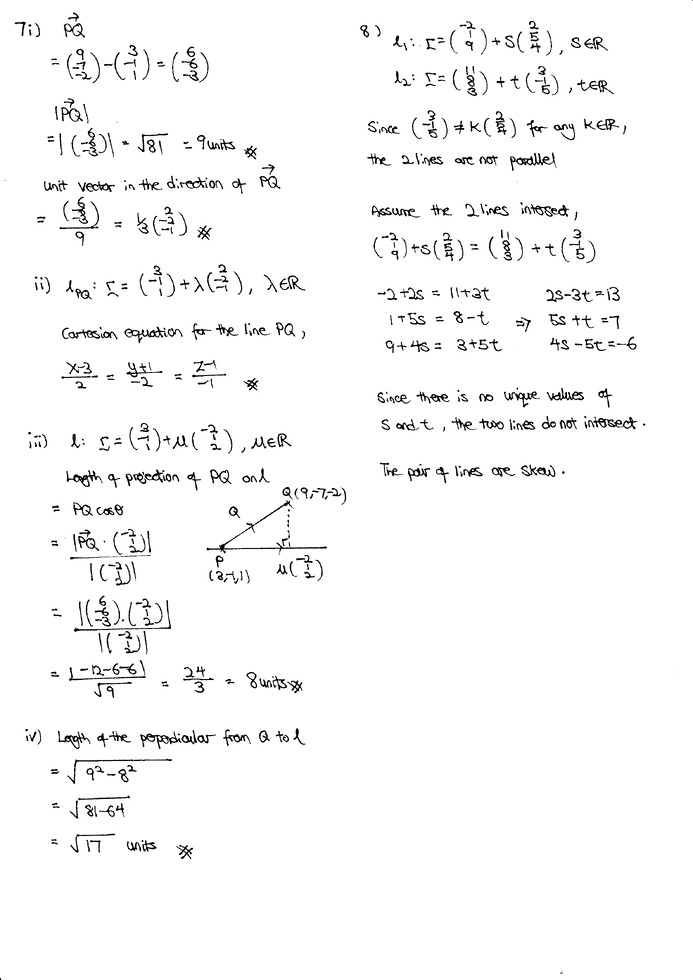 7i) $\overrightarrow{PQ}$
= (9 -7 -2) - (3 -1 1) = (6 -6 -3)
|$\overrightarrow{PQ}$|
= |(6 -6 -3)| = √81 = 9 units
unit vector in the direction of $\overrightarrow{PQ}$
= (6 -6 -3) / 9 = 1/3 (2 -2 -1)
ii) l_PQ: r = (3 -1 1) + λ(2 -2 -1), λ∈R
Cartesian equation for the line PQ,
x-3 / 2 = y+1 / -2 = z-1 / -1
iii) l: r = (3 -1 1) + μ(-2 1 2), μ∈R
Length of projection of PQ on l
= PQ cosθ
= |$\overrightarrow{PQ}$ · (-2 1 2)| / |(-2 1 2)|
= |(6 -6 -3) · (-2 1 2)| / |(-2 1 2)|
= |-12-6-6| / √9 = 24/3 = 8 units
Q(9,-7,-2)
Q
P
(3,-1,1)
μ(-2 1 2)
iv) Length of the perpendicular from Q to l
= √9²-8²
= √81-64
= √17 units
8) l₁: r = (-2 1 9) + s(2 5 4), s∈R
l₂: r = (11 8 3) + t(3 -1 5), t∈R
Since (3 -1 5) ≠ k(2 5 4) for any k∈R,
the 2 lines are not parallel
Assume the 2 lines intersect,
(-2 1 9) + s(2 5 4) = (11 8 3) + t(3 -1 5)
-2+2s = 11+3t 2s-3t=13
1+5s = 8-t ⇒ 5s+t=7
9+4s = 3+5t 4s-5t=-6
Since there is no unique values of
s and t, the two lines do not intersect.
The pair of lines are skew.